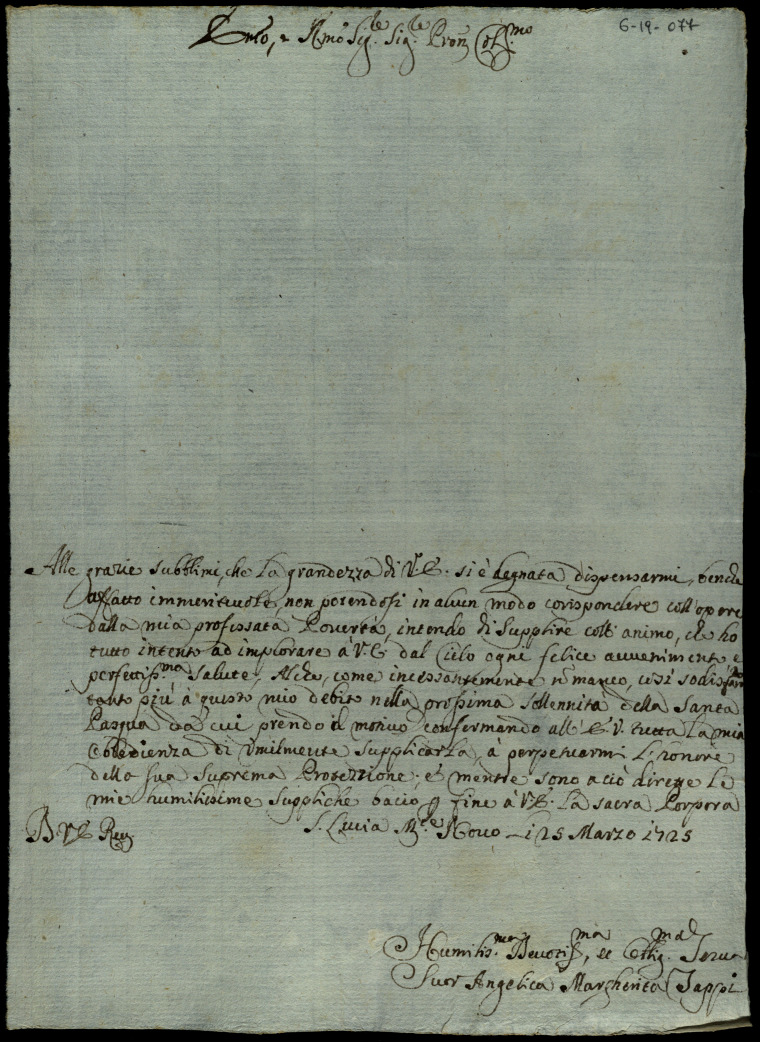 6-19-077
Emo, e Rmo Sig.re Sig.re Pron Col.mo
Alle grazie subblimi, che la grandezza di V.E. si è degnata dispensarmi, benche
affatto immeritevole, non potendosi in alcun modo corispondere coll'opere
dalla mia professata Povertà, intendo di supplire coll'animo, che ho
tutto intento ad implorare à V.E. dal Cielo ogni felice avvenimento e
perfettiss.ma salute; Al che, come incessantemente n manco, così sodisfarò
tanto più à questo mio debito nella prossima sollennità della Santa
Pasqua da cui prendo il motivo confermando all'E.V. tutta la mia
Obbedienza di Umilmente Supplicarla, à perpetuarmi l'honore
della sua suprema Protezzione; e mentre sono a ciò dirette le
mie humilissime suppliche bacio p fine à V.E. la sacra Porpora
B. V.E. Rev. S. Lucia M.te Novo - i 25 Marzo 1725
Humilis.ma Devotis.ma, et Obblig.ma Serva
Suor Angelica Margherita Tappi